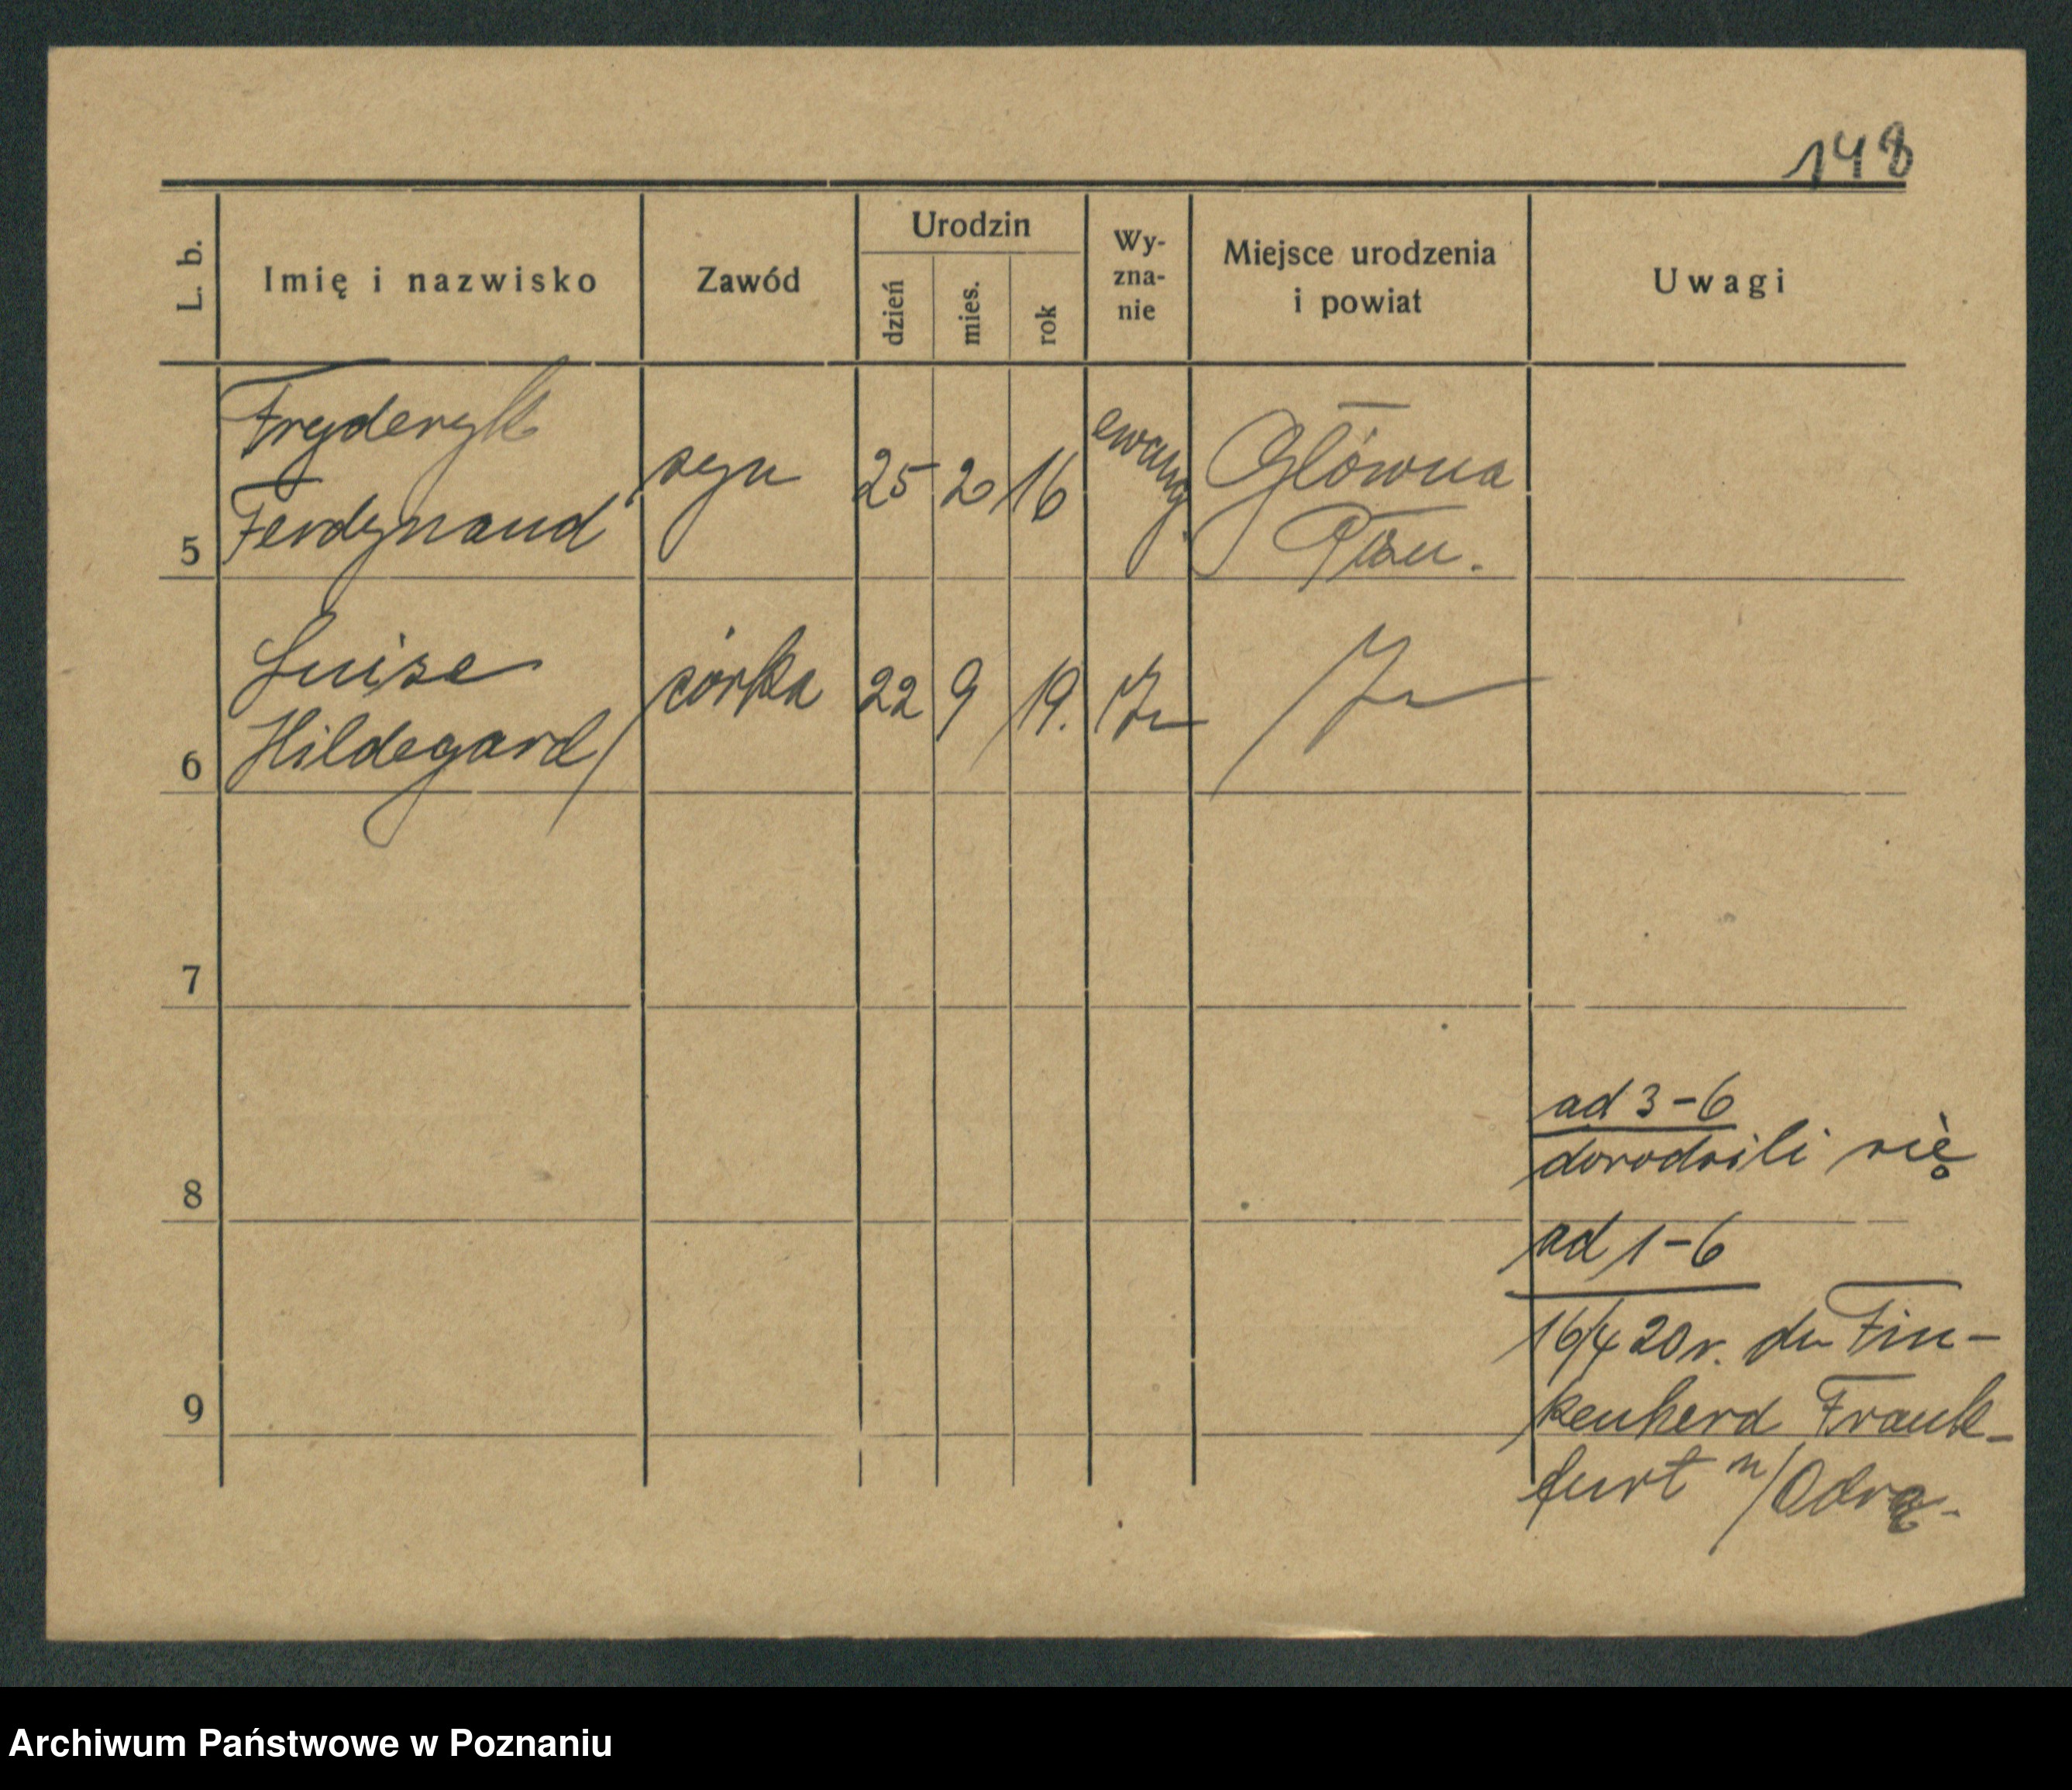 148
L. b.
Imię i nazwisko
Zawód
Urodzin
dzień
mies.
rok
Wy-
zna-
nie
Miejsce urodzenia
i powiat
Uwagi
5
Fryderyk
Ferdynand
syn
25
2
16
ewang.
Główna
Pozn.
6
Luise
Hildegard
córka
22
9
19.
7
8
9
ad 3-6
dorodzili się
ad 1-6
16/4 20 r. do Fin-
kenherd Frank-
furt n/Odrą.
Archiwum Państwowe w Poznaniu